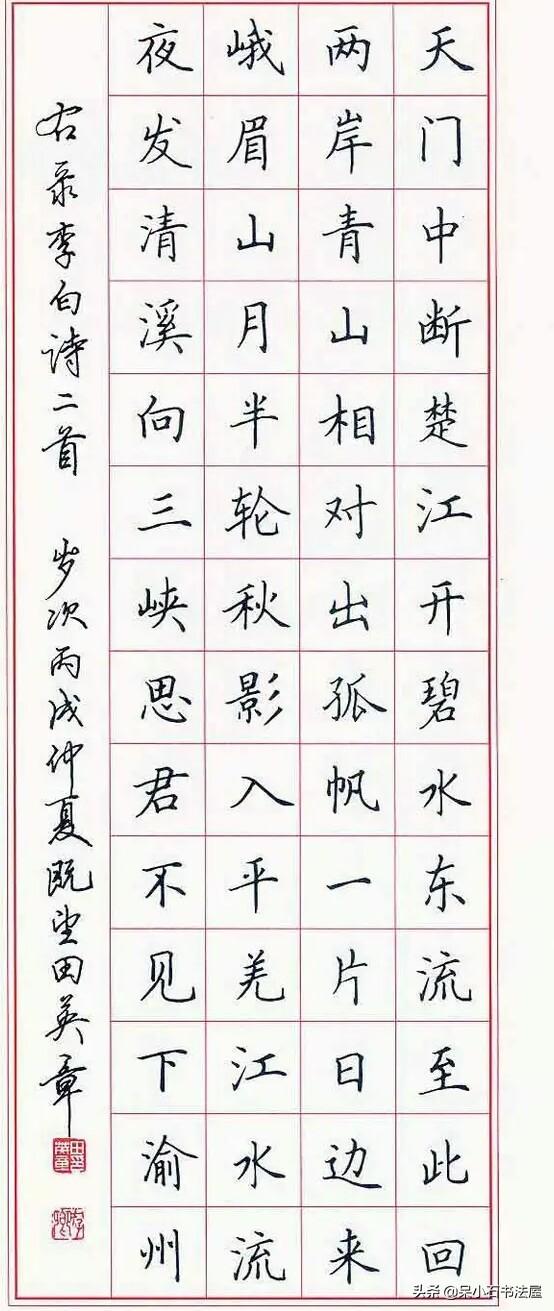 天门中断楚江开碧水东流至此回
两岸青山相对出孤帆一片日边来
峨眉山月半轮秋影入平羌江水流
夜发清溪向三峡思君不见下渝州
右录李白诗二首 岁次丙戌仲夏既望田英章
头条@呆小石书法屋